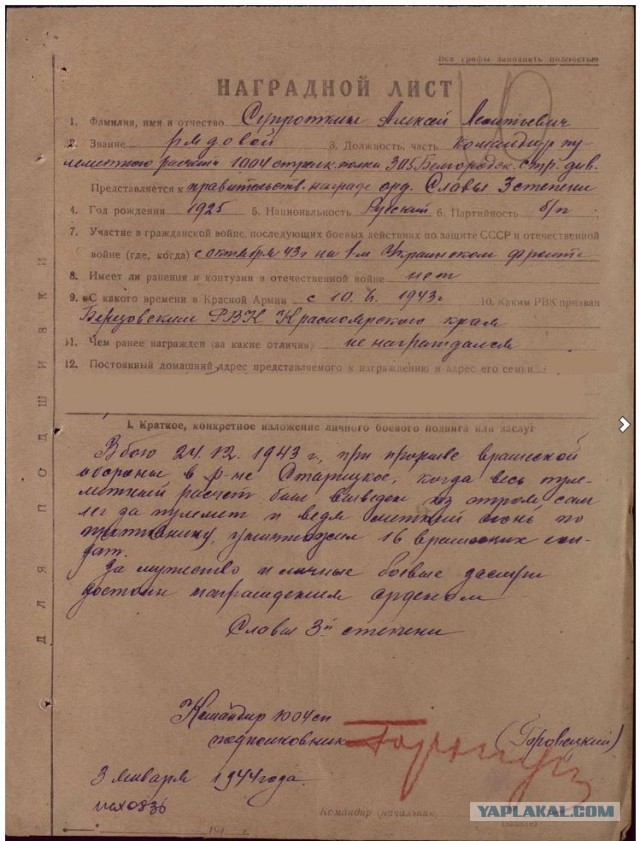 Все графы заполнять полностью
НАГРАДНОЙ ЛИСТ
1. Фамилия, имя и отчество Супроткин Алексей Леонтьевич
2. Звание рядовой 3. Должность, часть командир пу-
леметного расчета 1004 стрелк. полка 305 Белгородск. стр. див.
Представляется к правительств. награде орд. Славы 3 степени
4. Год рождения 1925 5. Национальность Русский 6. Партийность б/п
7. Участие в гражданской войне, последующих боевых действиях по защите СССР и отечественной
войне (где, когда) с октября 43 г на 1-м Украинском фронте
8. Имеет ли ранения и контузии в отечественной войне нет
9. С какого времени в Красной Армии с 10. 1943 г 10. Каким РВК призван
РВК Красноярского края
11. Чем ранее награжден (за какие отличия) не награждался
12. Постоянный домашний адрес представляемого к награждению и адрес его семьи
ДЛЯ ПОДШИВКИ
I. Краткое, конкретное изложение личного боевого подвига или заслуг
В бою 24.12.1943 г, при прорыве вражеской
обороны в р-не Старицкое, когда весь пуле-
метный расчет был выведен из строя сам
лег за пулемет и ведя меткий огонь по
противнику, уничтожил 16 вражеских сол-
дат.
За мужество и личные боевые заслуги
достоин награждения орденом
Славы 3й степени
Командир 1004 сп
подполковник (Горовецкий)
3 января 1944 года.
исх 0836
Командир (начальник)
YAPLAKAL.COM